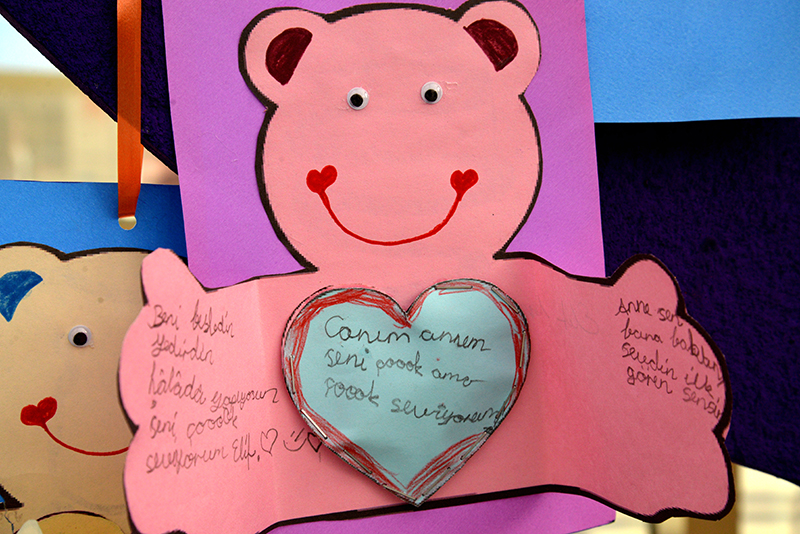 Beni besledin
Yedirdin
hâlâda yapıyorsun
Seni çooook
seviyorum Elif.
Canım annem
seni çoook ama
çoook seviyorum
Anne sen
bana bakan
sevdin ilk
gören sensin